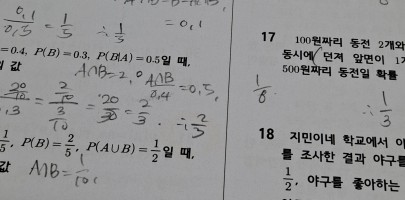 0,1/0,3 = 1/3 ∴ 1/3
= 0,1
=0.4, P(B)=0.3, P(B|A)=0.5일 때,
의 값
A∩B = 2,0
A∩B/0,4 = 0,5,
20/10 / 3/10 = 2/10 / 3/10 = 20/30 = 2/3 ∴ 2/3
1/5, P(B)=2/5, P(A∪B)=1/2일 때,
값 A∩B = 1/10,
17 100원짜리 동전 2개와
동시에 던져 앞면이 1
500원짜리 동전일 확률
1/6
∴ 1/3
18 지민이네 학교에서 야
를 조사한 결과 야구를
1/2, 야구를 좋아하는